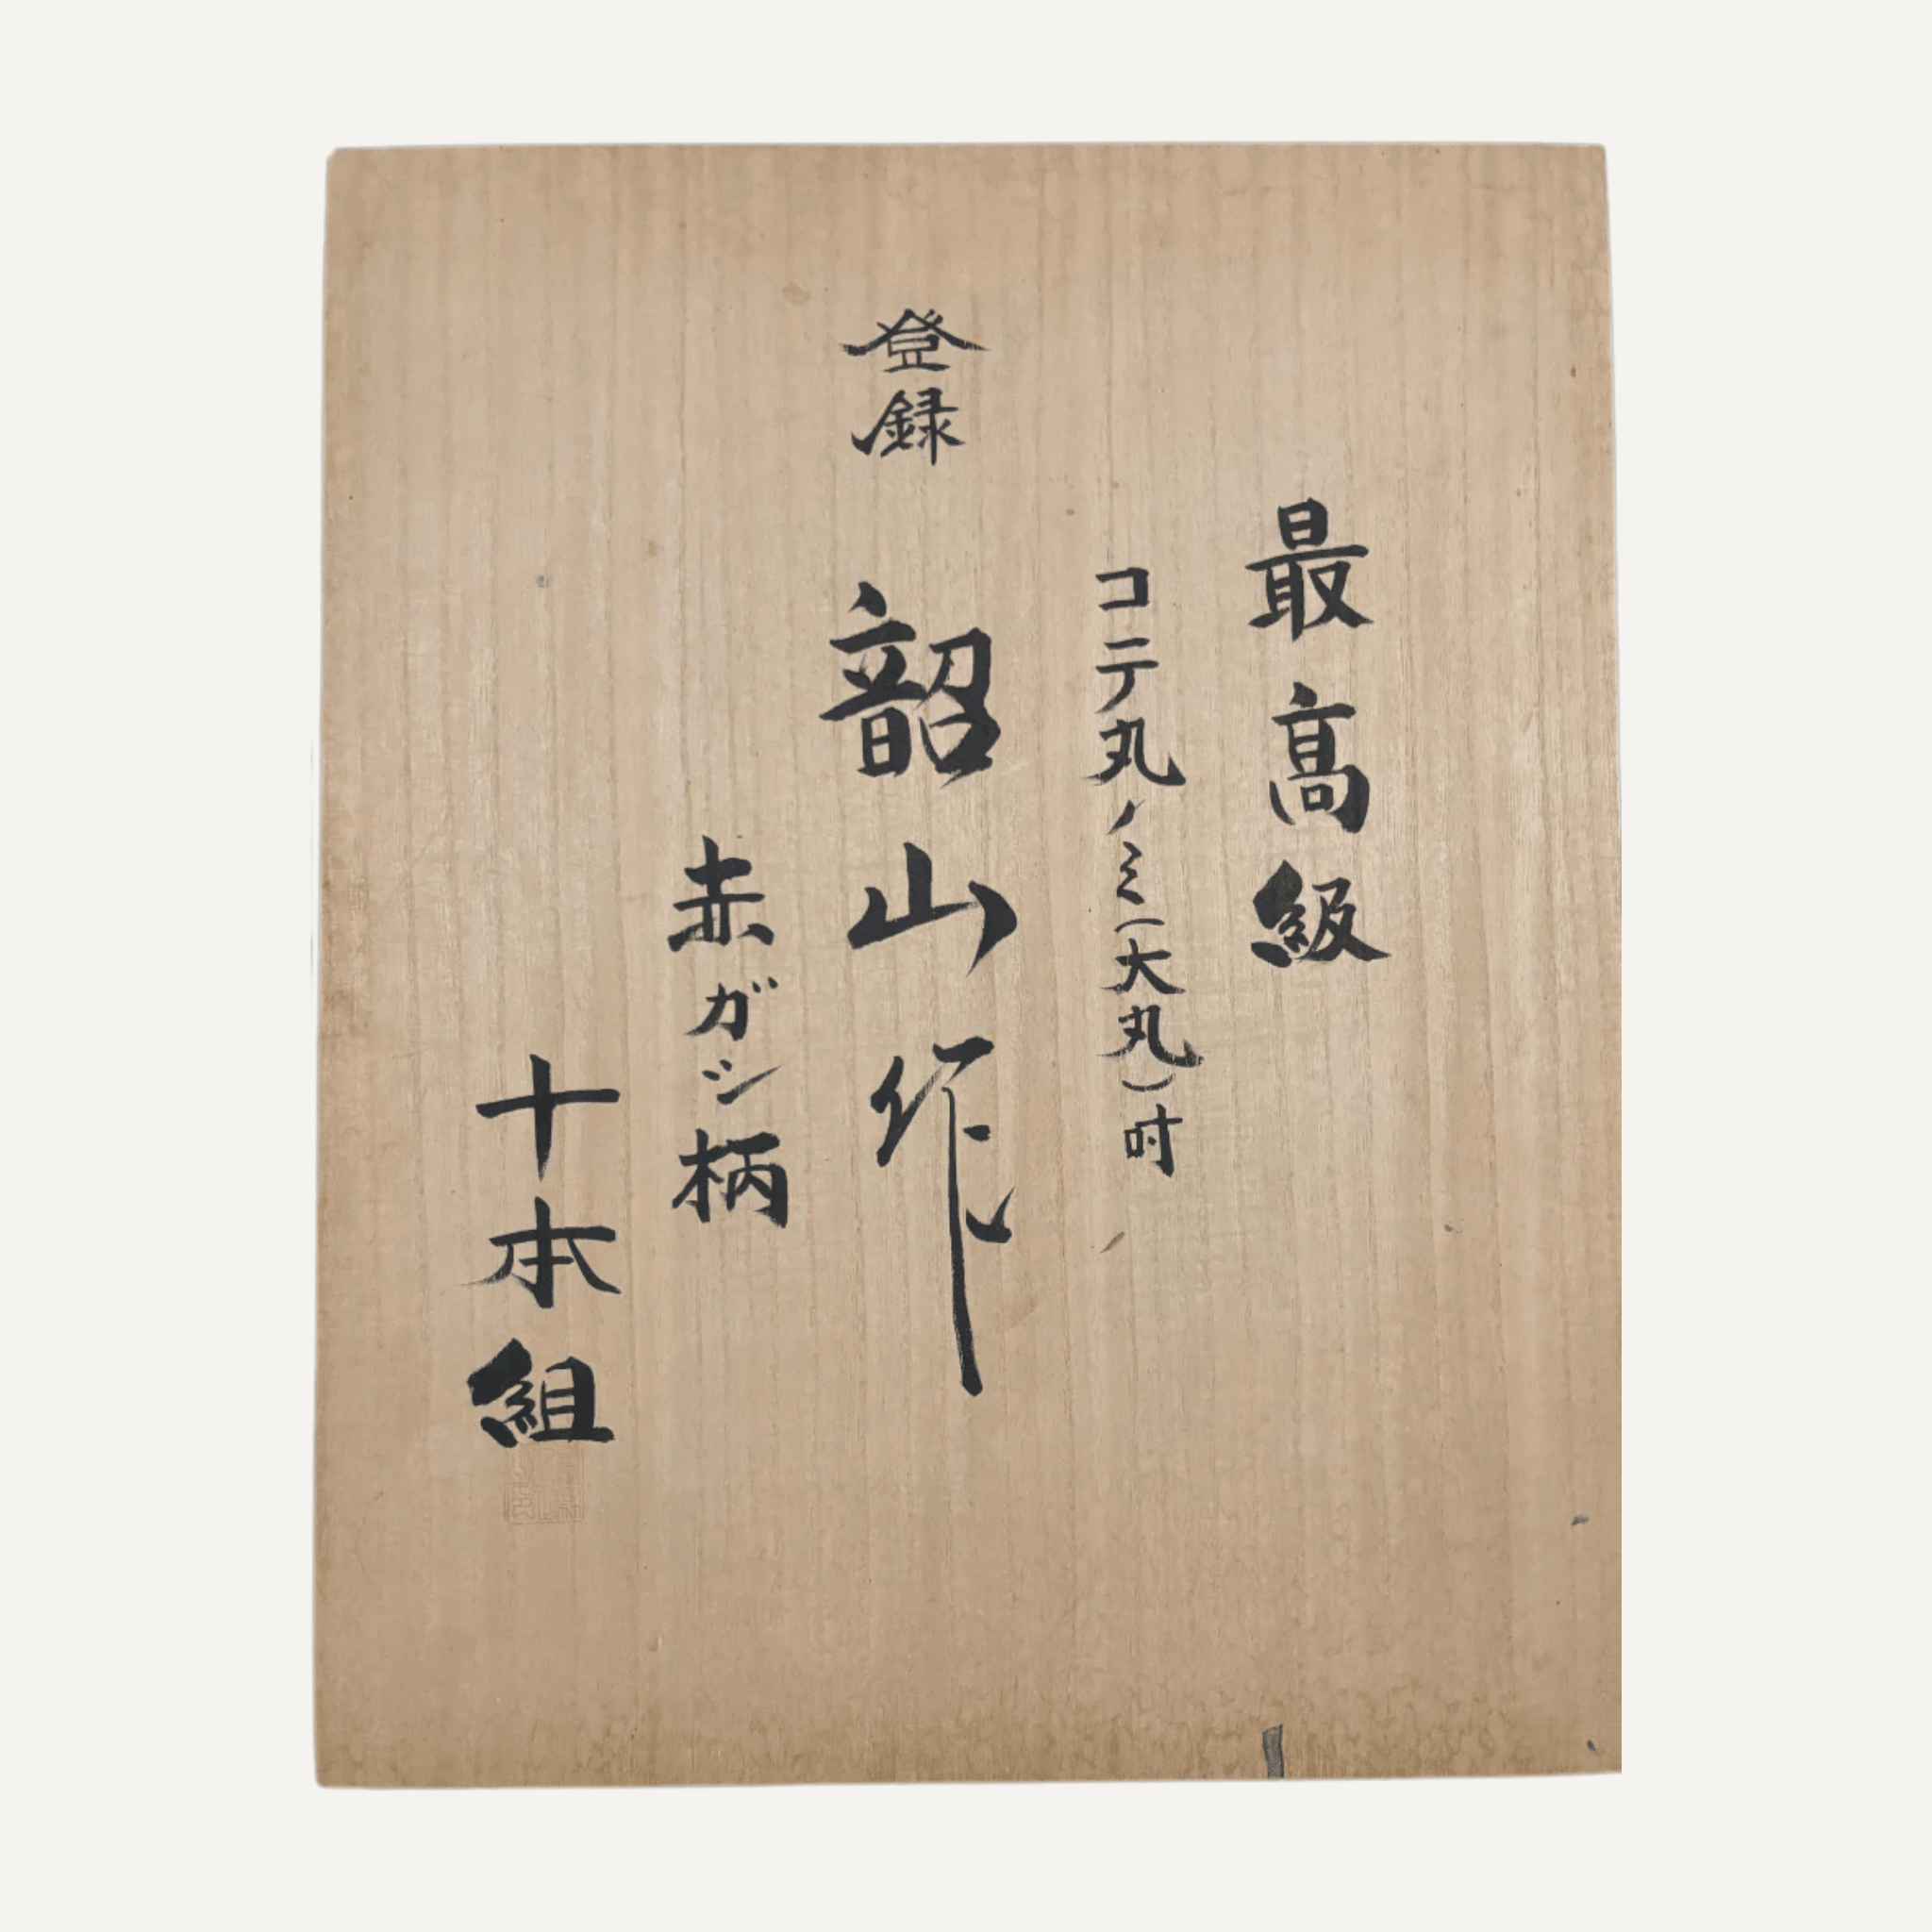 最高級
コテ丸ノミ(大丸)吋
登録 韶山作
赤ガシ柄
十本組